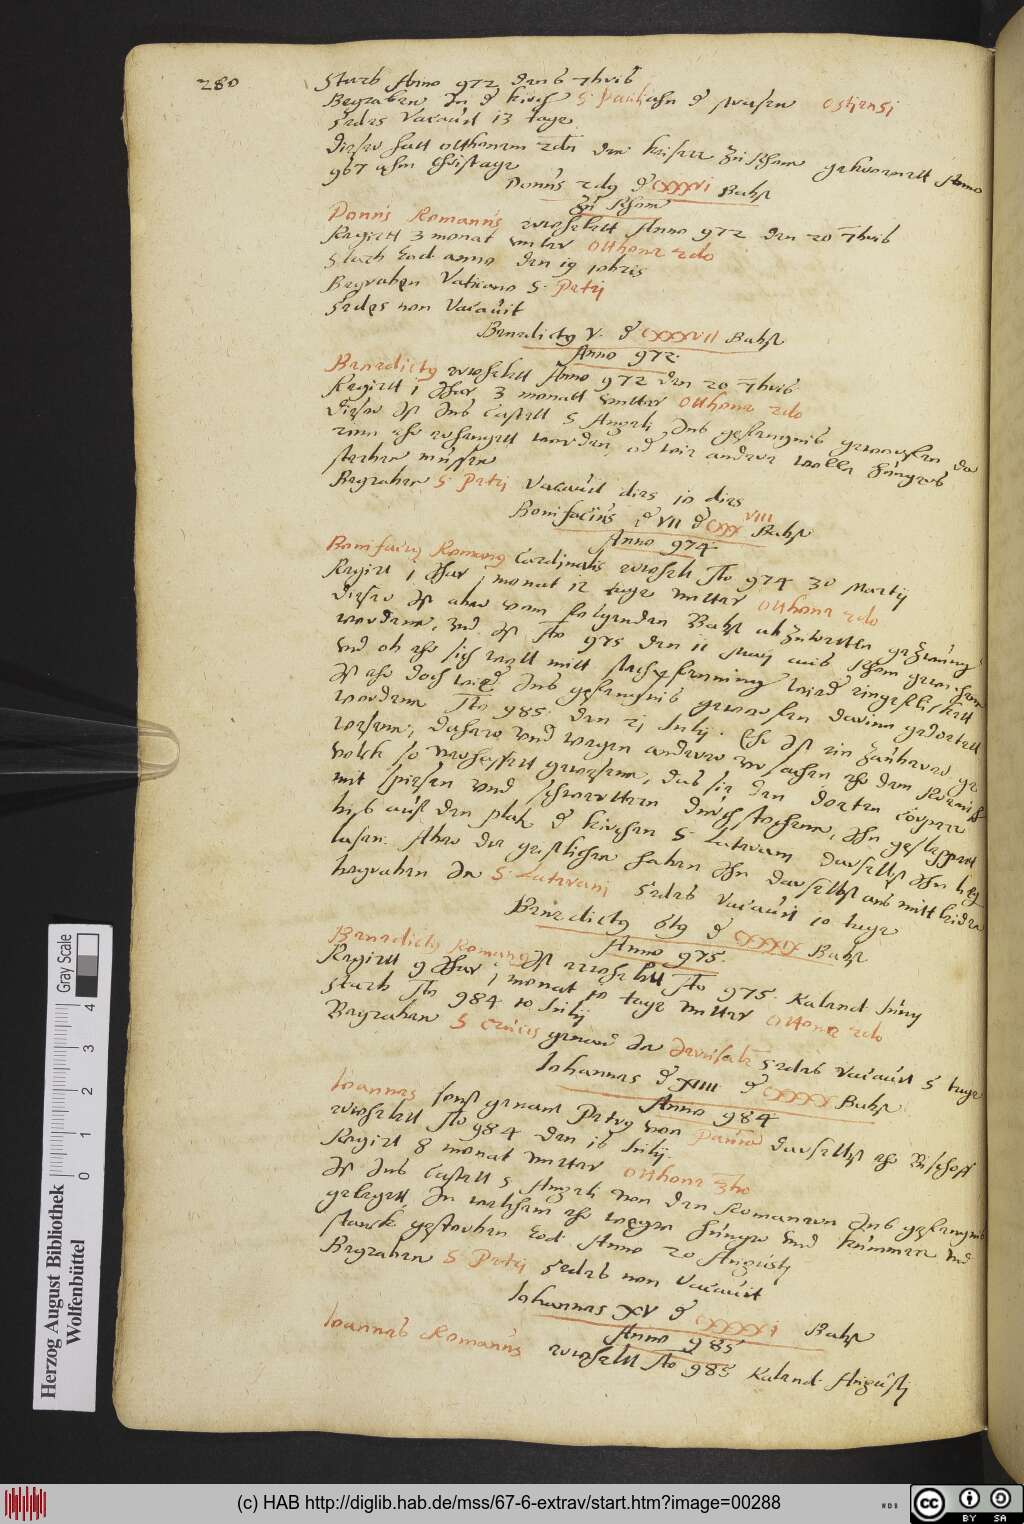 280
Starb Anno 972 den 6 7bris
Begraben In d kirch S. Pauli ahn d strasen Ostiensi
Sedes Vacauit 13 tage
Dieser hatt Otthonem 2dū den keiser zu Rhom gekroenett Anno
967 ahm Christage
Donnus 2dg d CXXXVI Babst
zu Rhom
Donnus Romanus erwehlett Anno 972 den 20 7bris
Regiert 3 monat vnter Otthone 2do
Starb Eod anno den 19 10bris
Begraben Vaticano S. Petri
Sedes non Vacauit
Benedictg V. d CXXXVII Babst
Anno 972
Benedictg erwehlett Anno 972 den 20 7bris
Regiett 1 Jhar 3 monatt vnter Otthone 2do
Dieser Ist Ins Castell S Angeli Ins gefangnis geworffen da
rinn ehr erhangett worden, od wie andere wolle hungers
sterben müssen
Begraben S Petri Vacauit dies 10 dies
Bonifacius d VII d CXXXVIII Babst
Anno 974
Bonifacig Romang Cardinalis erwehlt Ao 974 30 Martij
Regiert 1 Jhar 1 monat 12 tage vnter Otthone 2do
Dieser Ist aber vom folgenden Babst abzutretten gezwung
wordenn, vnd Ist Ao 975 den 11 May aus Rhom gewichen
vnd ob ehr sich woll mitt wird eingeschlichen
Ist ehr doch wied Ins gefangnis geworffen darinn gedoetett
wordenn Ao 985. den 21 Julij. Ehr Ist ein zauberer ge
wesenn, dahero vnd wegen anderer vrsachen ehr dem Roemisch
volck so verhassett gewesenn, das sie den doeten cörper
mit spiesen vnd schwertteren durchstochenn, Ihn geschleppett
bis auf den platz d kirchen S Lateran daselbst Ihn lieg
lasen. Aber die geistlichen haben Ihn daselbst aus mittleiden
begraben In S. Laterani Sedes Vacauit 10 tage
Benedictg 6tg d CXXXIX Babst
Anno 975.
Benedictg Romang Ist erwehlett Ao 975. Kalend Juny
Regiett 9 Jhar 1 monat 10 tage vnter Otthone 2do
Starb Ao 984 10 Julij
Begraben S Crucis genand In Jerusalē Sedes Vacauit 5 tage
Johannes d XIIII d CXXXX Babst
Anno 984
Joannes sonst genant Petrg von Pauia daselbst ehr Bischoff
erwehlett Ao 984 den 16 Julij.
Regirt 8 monat vnter Otthone 3tio
Ist Ins Castell S Angeli von den Romanern Ins gefangnis
gelegett, In welchem ehr wegen hunger vnd kummer vnd
stanck gestorben Eod Anno 20 Augusti
Begraben S Petri Sedes non Vacauit
Johannes XV d CXXXXI Babst
Anno 985
Joannes Romanus erwehlett Ao 985 Kalend Augusti
Herzog August Bibliothek
Wolfenbüttel
Gray Scale
0 1 2 3 4
(c) HAB http://diglib.hab.de/mss/67-6-extrav/start.htm?image=00288
WDB
cc
BY SA